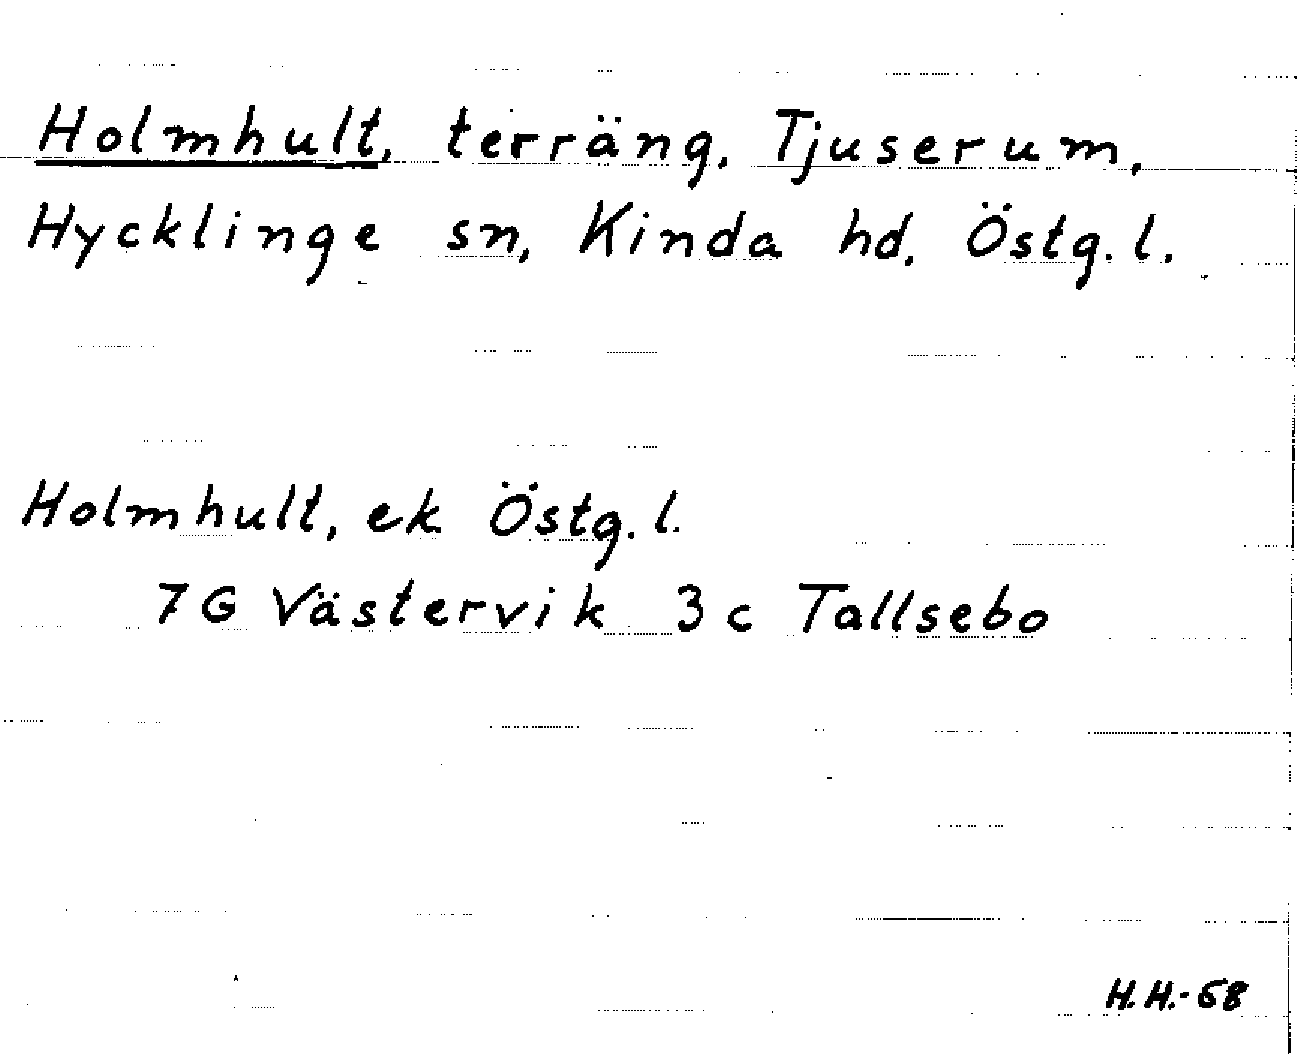 Holmhult, terräng, Tjuserum,
Hycklinge sn, Kinda hd. Östg. l.
Holmhult, ek Östg. l.
7 G Västervik 3 c Tallsebo
H. H.-58